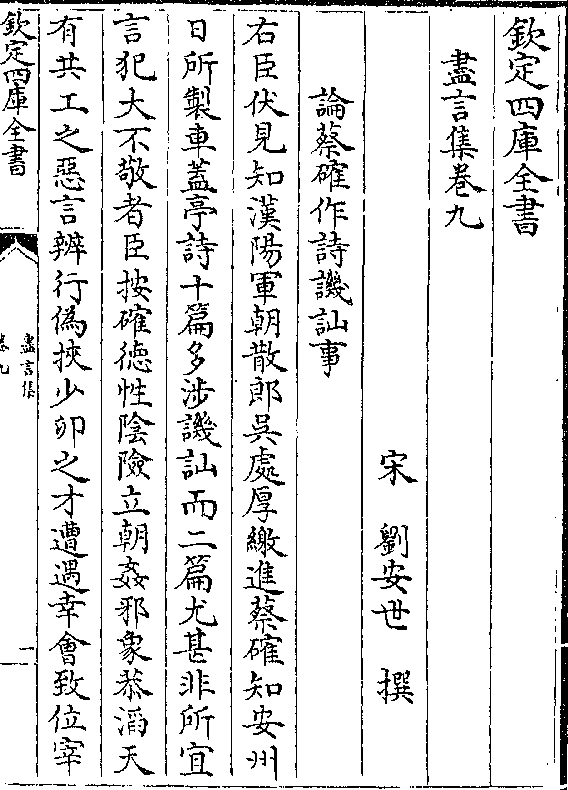 欽定四庫全書
盡言集卷九
宋 劉安世 撰
論蔡確作詩譏訕事
右臣伏見知漢陽軍朝散郎吳處厚繳進蔡確知安州
日所製車蓋亭詩十篇多涉譏訕而二篇尤甚非所宜
言犯大不敬者臣按確德性陰險立朝姦邪象恭滔天
有共工之惡言辨行偽挾少卯之才遭遇幸會致位宰
欽定四庫全書
盡言集
卷九
一